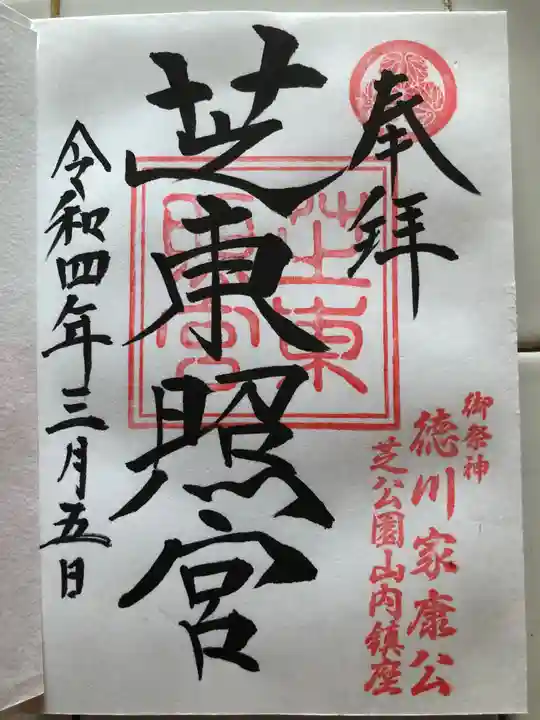 奉拝
御祭神
徳川家康公
芝公園山内鎮座
芝東照宮
芝東照宮
令和四年三月五日